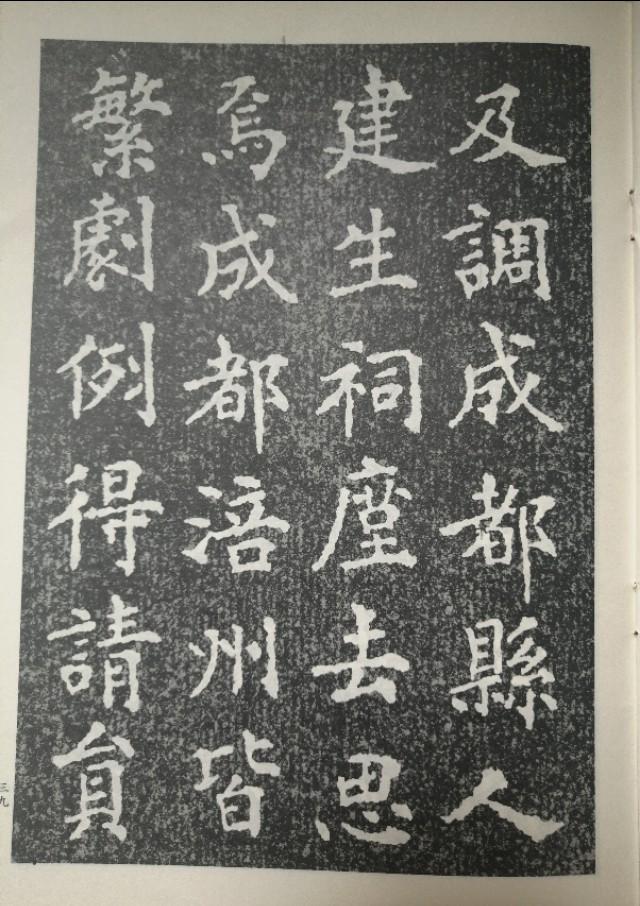 及調成都縣人
建生祠去思
焉成都涪州皆
繁劇例得請貟
三九